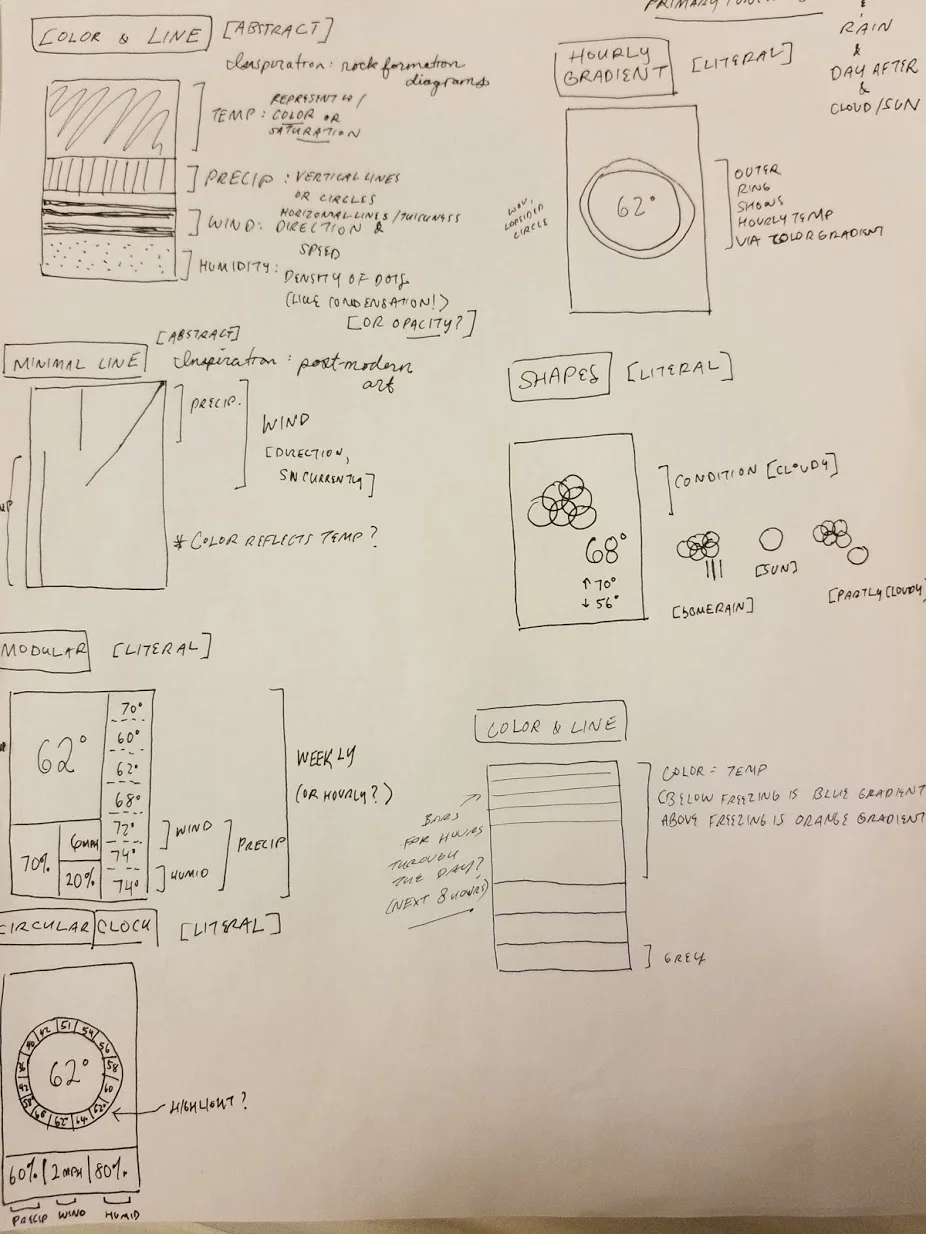 COLOR & LINE [ABSTRACT]
Inspiration: rock formation
diagrams
TEMP: REPRESENT W/
COLOR OR
SATURATION
PRECIP: VERTICAL LINES
OR CIRCLES
WIND: HORIZONTAL LINES/THICKNESS
DIRECTION &
SPEED
HUMIDITY:
DENSITY OF DOTS
(LIKE CONDENSATION!)
[OR OPACITY?]
PRIMARY
RAIN
&
DAY AFTER
&
CLOUD/SUN
HOURLY
GRADIENT [LITERAL]
62°
LOPSIDED
CIRCLE
OUTER
RING
SHOWS
HOURLY TEMP
VIA COLOR GRADIENT
MINIMAL LINE [ABSTRACT]
Inspiration: post-modern
art
PRECIP.
WIND
[DIRECTION,
*COLOR REFLECTS TEMP?
SHAPES [LITERAL]
CONDITION [CLOUDY]
68°
↑ 70°
↓ 56°
[SOME RAIN]
[SUN]
[PARTLY CLOUDY]
MODULAR [LITERAL]
62°
70°
60°
62°
68°
72°
74°
74°
70%
6MPH
20%
WIND
HUMID
PRECIP
WEEKLY
(OR HOURLY?)
COLOR & LINE
BARS
FOR HOURS
THROUGH
THE DAY?
(NEXT 8 HOURS)
COLOR = TEMP
(BELOW FREEZING IS BLUE GRADIENT
ABOVE FREEZING IS ORANGE GRADIENT
GREY
CIRCULAR CLOCK [LITERAL]
62°
51
54
56
58
60
62°
64
62
42
HIGHLIGHT?
60% | 2 MPH | 80%
PRECIP WIND HUMID